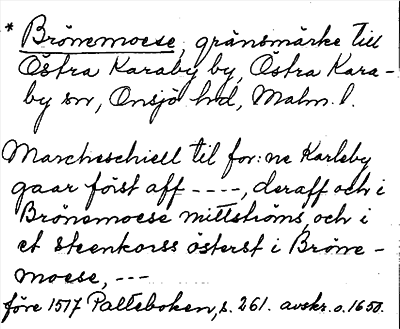 * Brönemoese, gränsmärke till
Östra Karaby by, Östra Kara-
by sn, Onsjö hd, Malm. l.
Marcheschiell til for:ne Karleby
gaar först aff ----, deraff och i
Brönemoese mittströms, och i
et steenkorss österst i Bröne-
moese, ---
före 1517 Palteboken, s. 261. avskr. o. 1650.